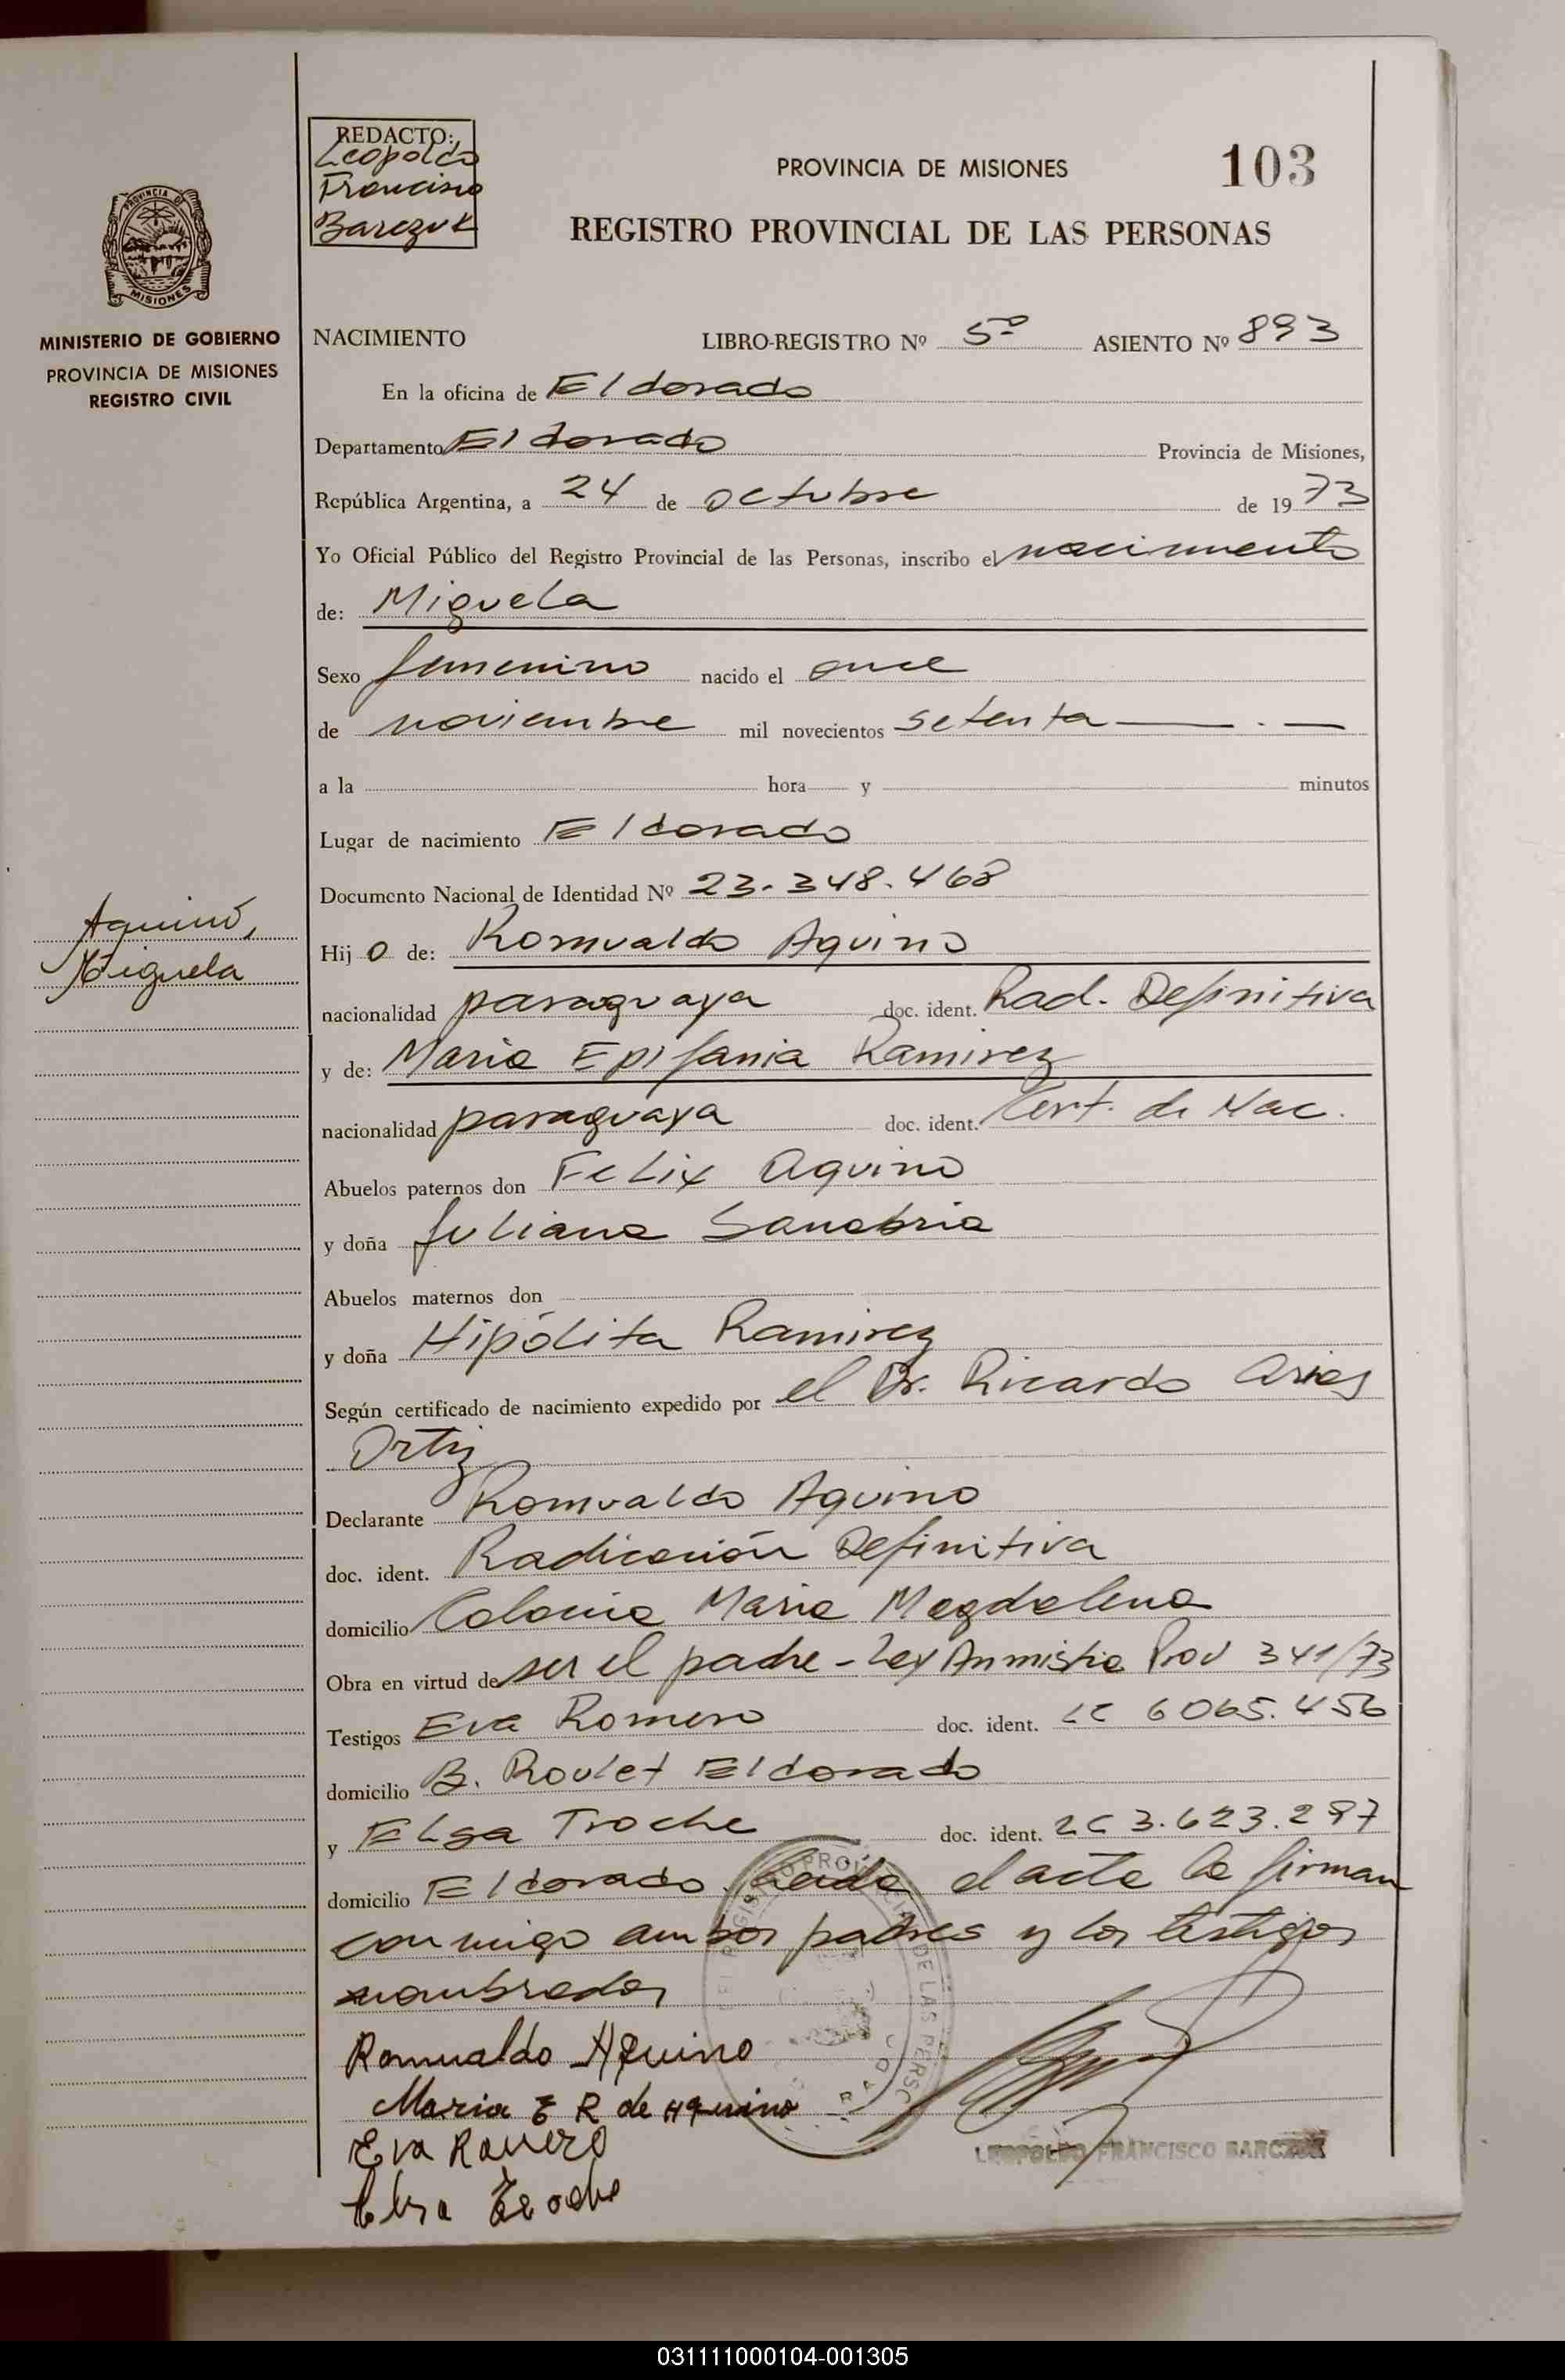 REDACTO:
Leopoldo
Francisco
Barczuk
PROVINCIA DE MISIONES
103
REGISTRO PROVINCIAL DE LAS PERSONAS
PROVINCIA DE
MISIONES
MINISTERIO DE GOBIERNO
PROVINCIA DE MISIONES
REGISTRO CIVIL
NACIMIENTO LIBRO-REGISTRO Nº 5º ASIENTO Nº 893
En la oficina de Eldorado
Departamento Eldorado Provincia de Misiones,
República Argentina, a 24 de octubre de 1973
Yo Oficial Público del Registro Provincial de las Personas, inscribo el nacimiento
de: Miguela
Sexo femenino nacido el once
de noviembre mil novecientos setenta
a la hora y minutos
Lugar de nacimiento Eldorado
Documento Nacional de Identidad Nº 23.348.468
Aquino,
Miguela
Hijo de: Romualdo Aquino
nacionalidad paraguaya doc. ident. Rad. Definitiva
y de: Maria Epifania Ramirez
nacionalidad paraguaya doc. ident. Cert. de Nac.
Abuelos paternos don Felix Aquino
y doña Juliana Sanabria
Abuelos maternos don
y doña Hipólita Ramirez
Según certificado de nacimiento expedido por el Dr. Ricardo Arias
Ortiz
Declarante Romualdo Aquino
doc. ident. Radicación Definitiva
domicilio Colonia Maria Magdalena
Obra en virtud de ser el padre - Ley Anmistia Prov 341/73
Testigos Eva Romero doc. ident. LC 6065.456
domicilio B. Roulet Eldorado
y Elsa Troche doc. ident. LC 3.623.297
domicilio Eldorado. Leida el acta la firman
conmigo ambos padres y los testigos
nombrados
Romualdo Aquino
Maria E R de Aquino
Eva Romero
Elsa Troche
LEOPOLDO FRANCISCO BARCZUK
031111000104-001305